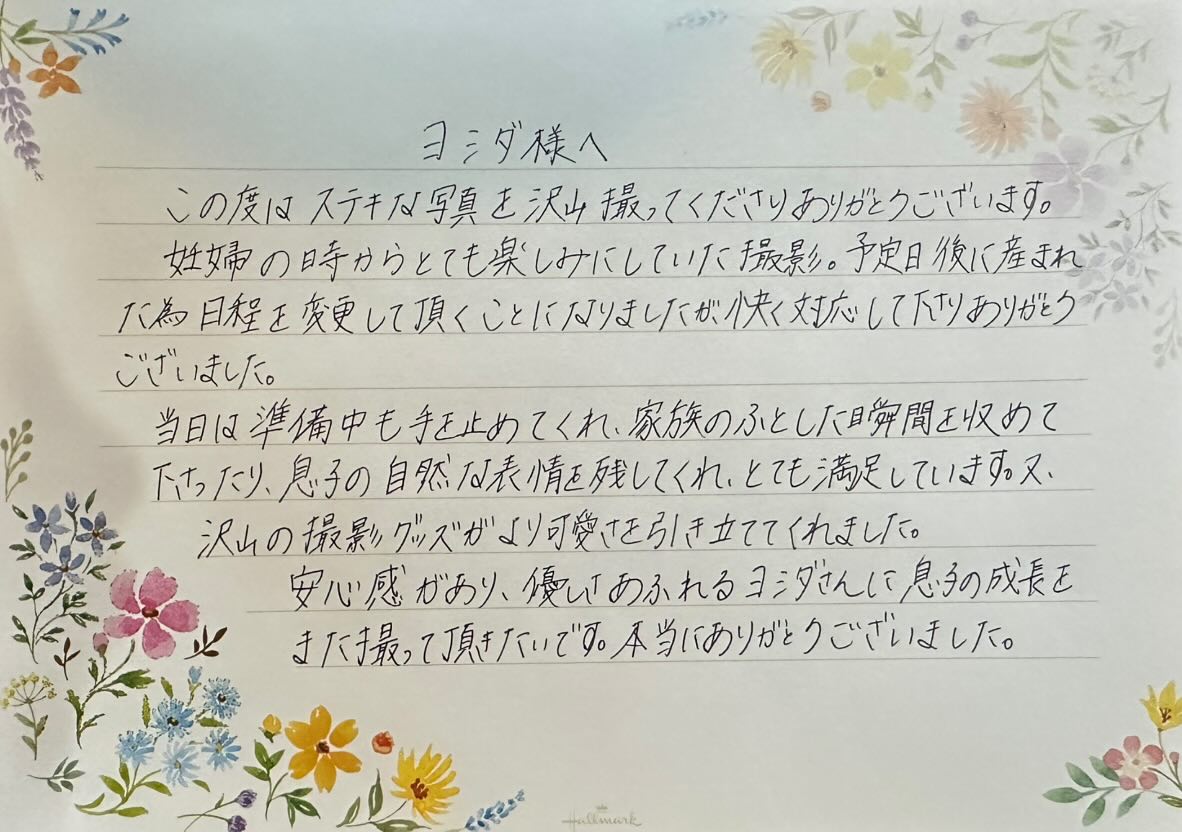 ヨシダ様へ
この度は ステキな写真を沢山撮ってくださりありがとうございます。
妊婦の時からとても楽しみにしていた撮影。予定日後に産まれ
た為日程を変更して頂くことになりましたが、快く対応して下さりありがとう
ございました。
当日は準備中も手を止めてくれ、家族のふとした瞬間を収めて
下さったり、息子の自然な表情を残してくれ、とても満足しています。又、
沢山の撮影グッズがより可愛さを引き立ててくれました。
安心感があり、優しさあふれるヨシダさんに息子の成長を
また撮って頂きたいです。本当にありがとうございました。
Hallmark